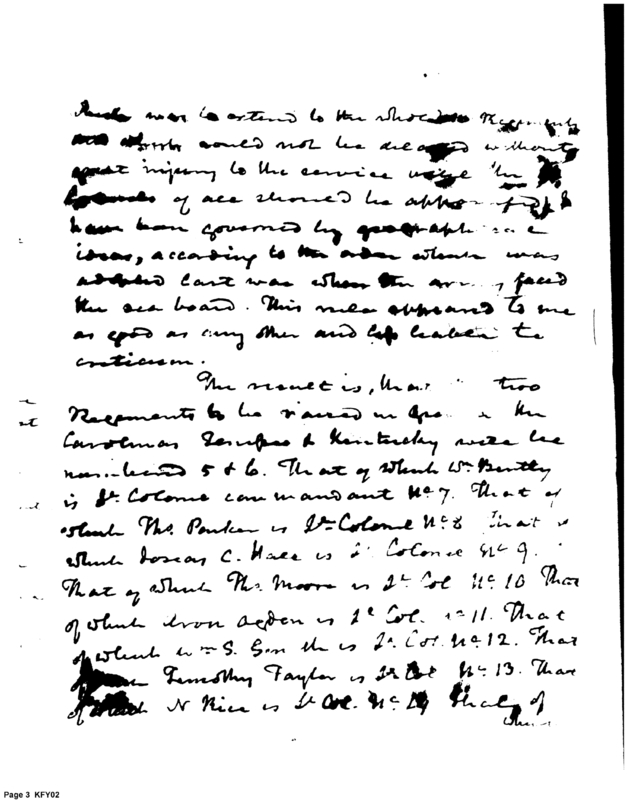 was to extend to the whole Regiments
which could not be delayed without
great injury to the service unless the
of all should be
have been governed by geographical
ideas, according to the order which was
adopted last war when the army faced
the sea board. This rule appeared to me
as good as any other and less liable to
criticism.
The result is, that two
Regiments to be raised in the
Carolinas Tennessee & Kentucky will be
numbered 5 & 6. That of which Wm Bently
is Lt. Colonel commandant No. 7. That of
which Ths. Parker is Lt Colonel No 8 That
which Josias C. Hall is Lt Colonel No 9.
That of which Ths Moore is Lt Col No. 10 That
of which Aron Ogden is Lt Col. 11. That
of which Wm S. Smith is Lt. Col. No. 12. That
Timothy Taylor is Lt Col No. 13. That
of which N Rice is Lt Col. No. 14 That of
which
Page 3 KFY02